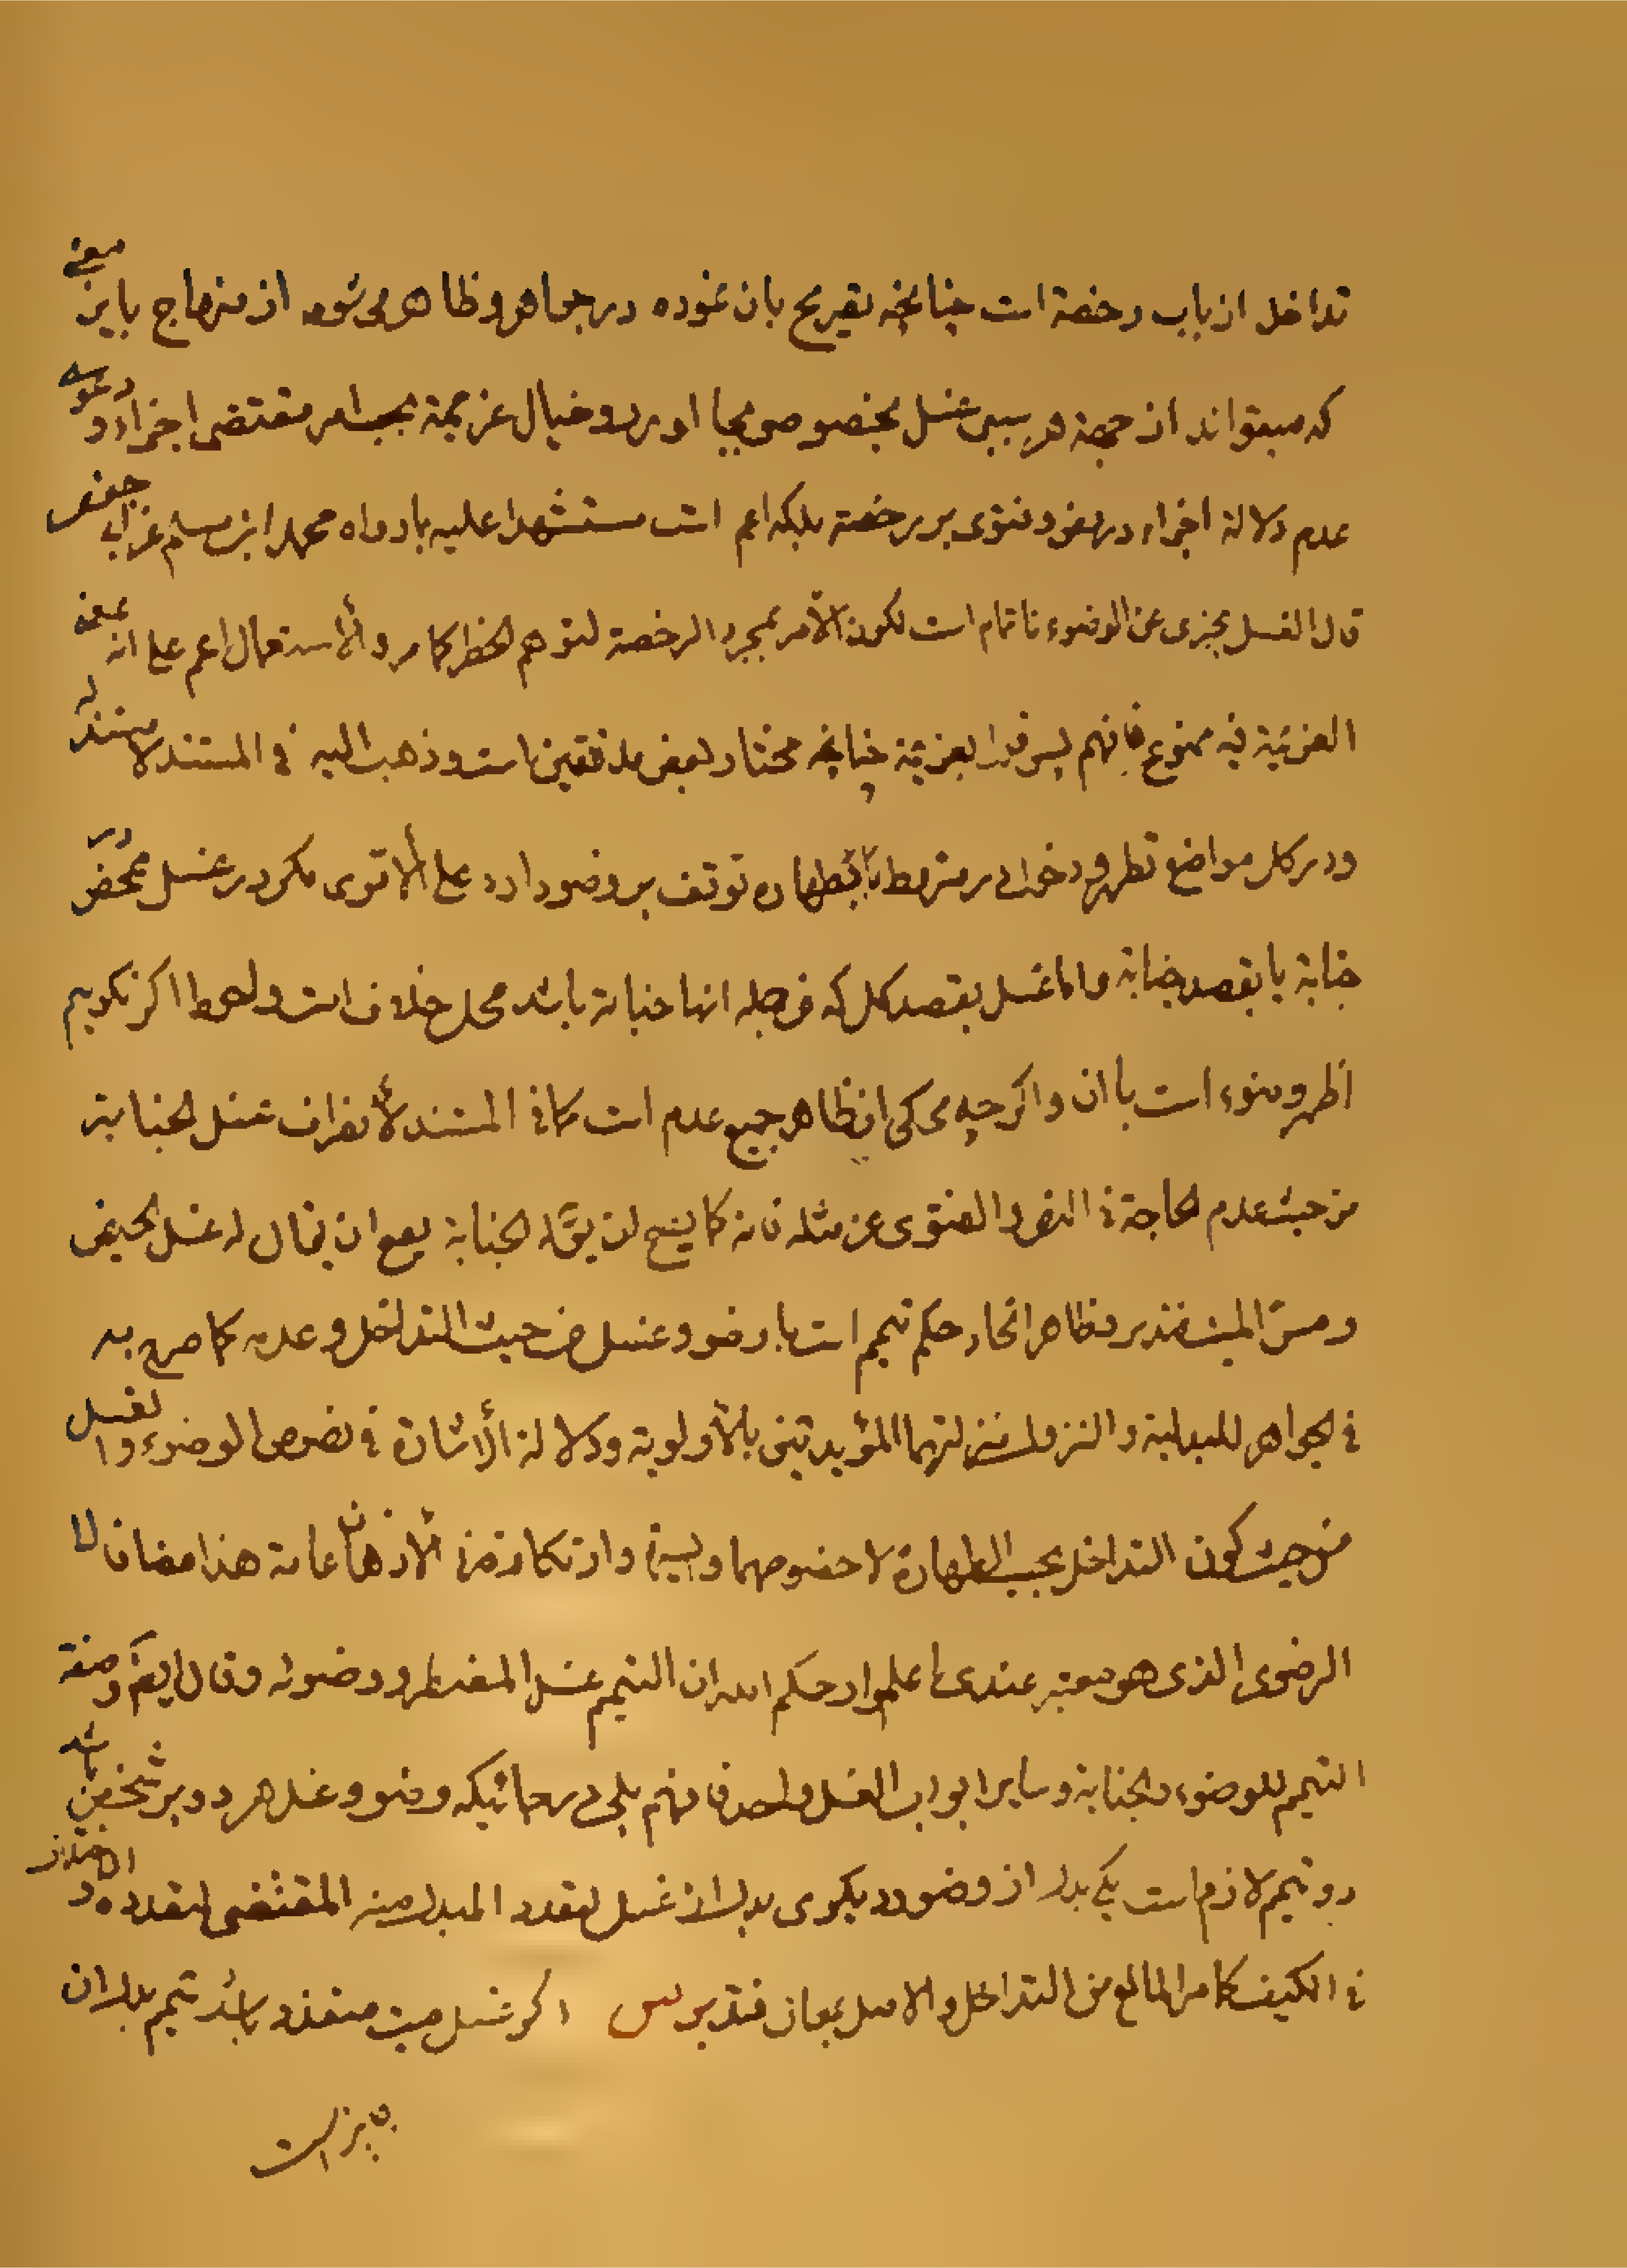 تداخل از باب رخصة است چنانچه تصریح بان نموده در جواهر و ظاهر می شود از منهاج باین معنی
که میتواند از جهة هر سببی غسل بخصوصی بجا اورد و خیال عزیمة بحسب امر مقتضی اجزاء و دعوی
عدم دلالة اجزاء در نص و فتوی بر رخصة بلکه اعم است مستشهدا علیه بما رواه محمد ابن مسلم عن ابی جعفر
قال الغسل یجزی عن الوضوء ناتمام است لکون الأمر بمجرد الرخصة لتوهم الحظر کما مر و الأستعمال اعم علی انه بمعنی
العزیمة فیه ممنوع فافهم پس قول بعزیمة چنانچه مختار بعض مدققین است و ذهب الیه فی المستند لا مستند له
و در کل مواضع تطهر و دخول در مشروط بالطهاره توقف بر وضو دارد علی الاقوی مگر در غسل محض در
جنابة یا بقصد جنابة و اما غسل بقصد کل که من جمله انها جنابة باشد محل خلاف است و احوط اگر نگوییم
أظهر وضوء است با ان و اگر چه محکی از ظاهر جمیع عدم است کما فی المستند لأنصراف غسل الجنابة
من حیث عدم الحاجة فی النص و الفتوی عن مثله فانه کما یصح ان یق له الجنابة یصح ان یقال له غسل الحیض
و مس المیت فتدبر و ظاهر اتحاد حکم تیمم است با وضو و غسل من حیث التداخل و عدمه کما صرح به
فی الجواهر للبدلیة و النزول منزلتهما المؤیدتین بالأولویة و دلالة الأشارة فی نصوص الوضوء و الغسل
من حیث کون التداخل بحسب الطهارة لا خصوصهما و لسیرة و ارتکازة من الأذهان عامة هذا مضافا لا
الرضوی الذی هو معتبر عندی اعلموا رحمکم الله ان التیمم غسل المضطر و وضوئه و قال ایضا و صفة
التیمم للوضوء و الجنابة و سایر ابواب الغسل واحد فافهم بلی در جائیکه وضو و غسل هر دو بر شخص باشد
دو تیمم لازم است یکی بدل از وضو و دیگری بدل از غسل لتعدد المبدل منه المقتضی لتعدده و الاختلاف
فی الکیف کما مر المانع من التداخل و الاصل بحاله فتدبر س اگر غسل میت متعذر باشد تیمم بدل ان